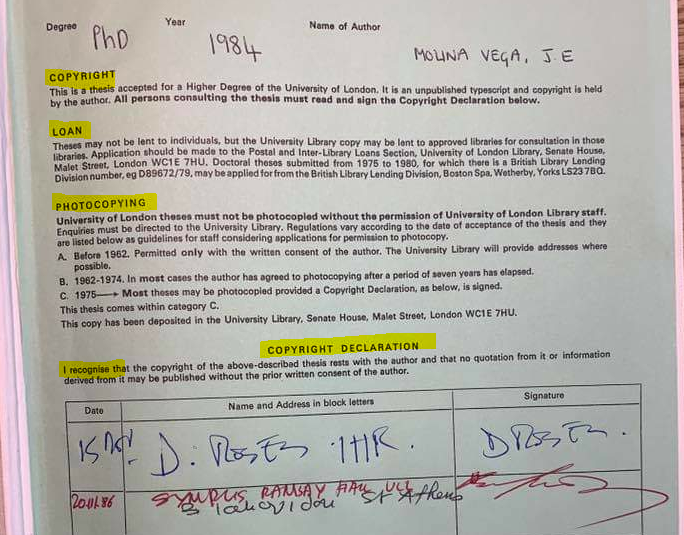 Degree Year Name of Author
PhD 1984 MOLINA VEGA, J.E
COPYRIGHT
This is a thesis accepted for a Higher Degree of the University of London. It is an unpublished typescript and copyright is held
by the author. All persons consulting the thesis must read and sign the Copyright Declaration below.
LOAN
Theses may not be lent to individuals, but the University Library copy may be lent to approved libraries for consultation in those
libraries. Application should be made to the Postal and Inter-Library Loans Section, University of London Library, Senate House,
Malet Street, London WC1E 7HU. Doctoral theses submitted from 1975 to 1980, for which there is a British Library Lending
Division number, eg D89672/79, may be applied for from the British Library Lending Division, Boston Spa, Wetherby, Yorks LS23 7BQ.
PHOTOCOPYING
University of London theses must not be photocopied without the permission of University of London Library staff.
Enquiries must be directed to the University Library. Regulations vary according to the date of acceptance of the thesis and they
are listed below as guidelines for staff considering applications for permission to photocopy.
A. Before 1962. Permitted only with the written consent of the author. The University Library will provide addresses where
possible.
B. 1962-1974. In most cases the author has agreed to photocopying after a period of seven years has elapsed.
C. 1975⟶ Most theses may be photocopied provided a Copyright Declaration, as below, is signed.
This thesis comes within category C.
This copy has been deposited in the University Library, Senate House, Malet Street, London WC1E 7HU.
COPYRIGHT DECLARATION
I recognise that the copyright of the above-described thesis rests with the author and that no quotation from it or information
derived from it may be published without the prior written consent of the author.
Date Name and Address in block letters Signature
D. IHR.
20.11.86 RAMSAY HALL UCL
St Athens